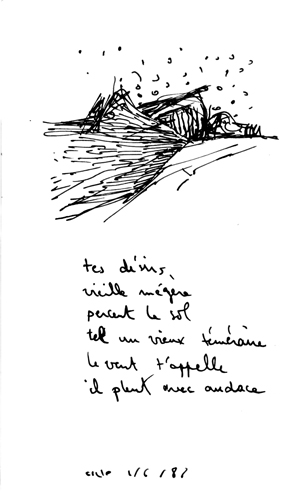 tes désirs,
vieille mégère
percent le sol
tel un vieux téméraire
le vent t'appelle
il pleut avec audace
1/6/87